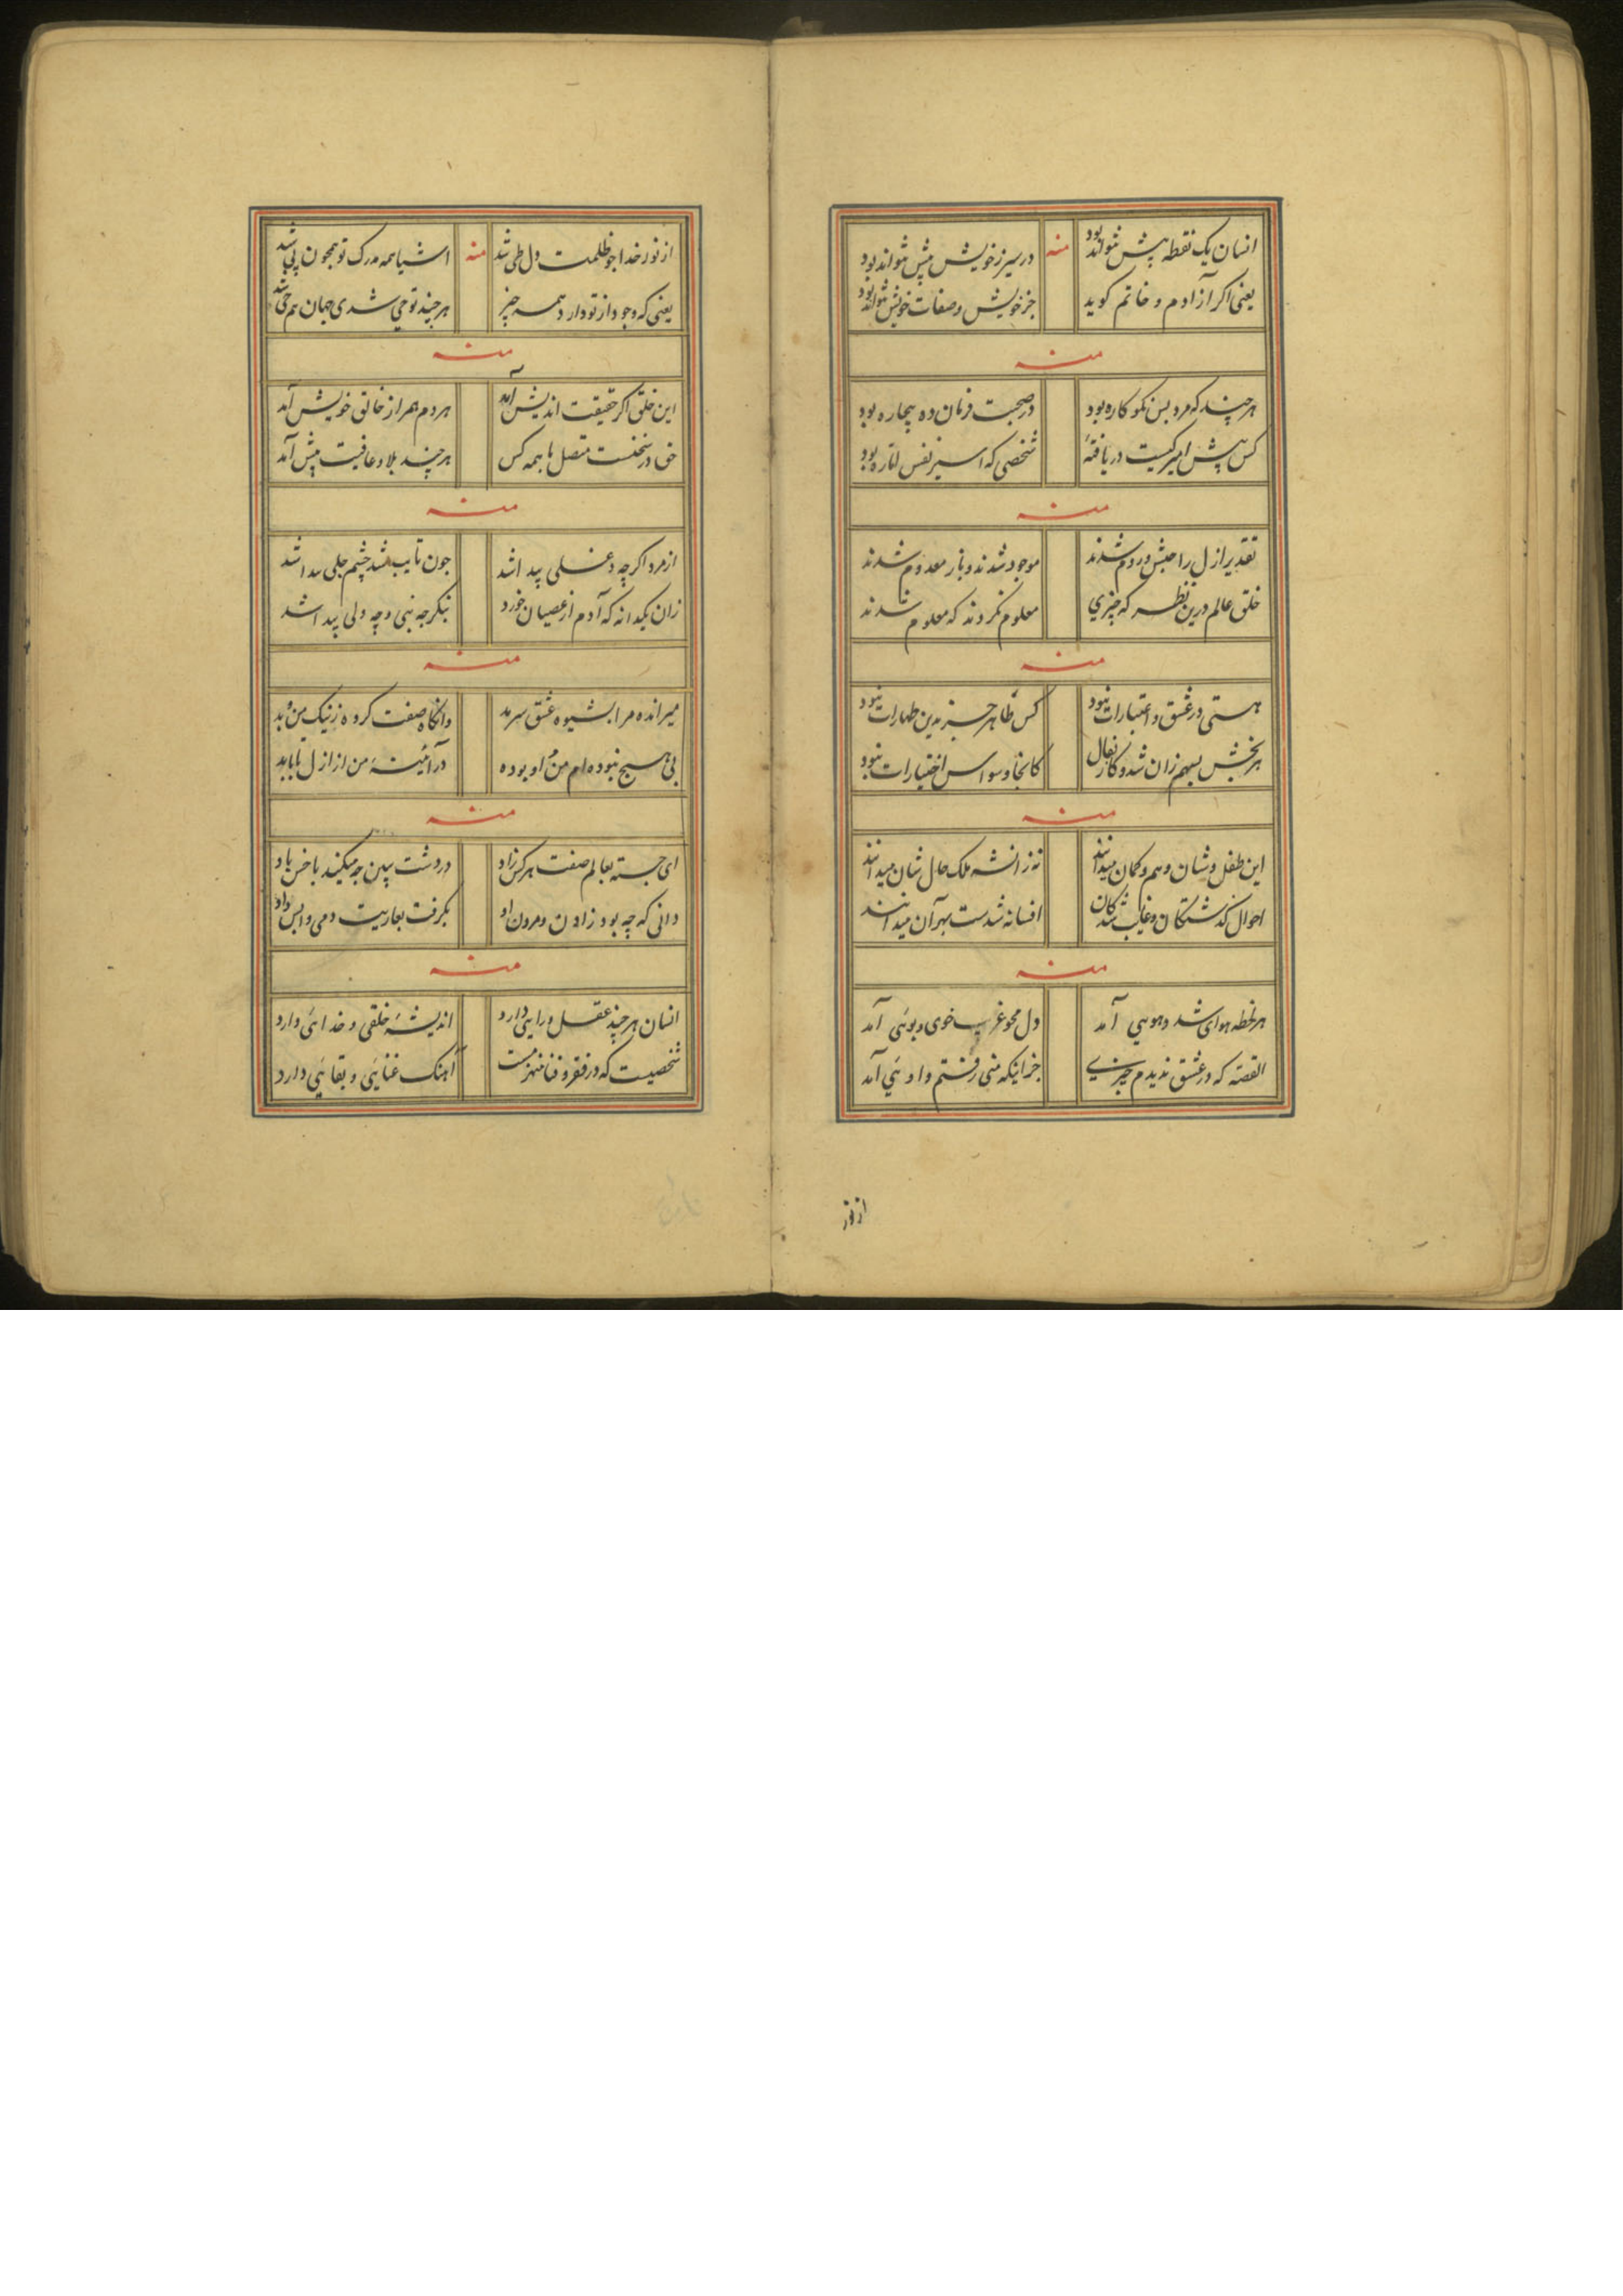 انسان یک نقطه پیش نتواند بود منه در سیر ز خویش پیش نتواند بود
یعنی اکر آزادم و خاتم کوید جز خویش و صفات خویش نتواند بود
منه
هر چند که مرد بس نکو کاره بود در صحبت فرمان ده بیچاره بود
کس پیش امیر کیست دریافتهٔ شخصی که اسیر نفس اماره بود
منه
تقدیر ازل را حبش و روم شدند موجود شدند و باز معدوم شدند
خلق عالم درین نظر که چیزی معلوم نکردند که معلوم شدند
منه
هستی در عشق و اعتبارات نبود کس طاهر جز بدین طهارات نبود
هر بخشش شد و کار کانجا وسواس اختیارات نبود
منه
این طفل وشان وهم و کمان میدانند نه زانسه ملک حال شان میدانند
احوال کذشتکان و غایب شدکان افسانه شدست بهر آن میدانند
منه
هر لحظه هوای شد و هویی آمد دل محو غریب خوی و بوئی آمد
القصه که در عشق ندیدم چیزی جز اینکه منی رفتم و اوئی آمد
از نور
از نور خدا جو ظلمت دل طی شد منه اشیا همه مدرک تو همچون پی شد
یعنی که وجود از تو دارد همه چیز هر چند تو حی شدی جهان هم حی شد
منه
این خلق اکر حقیقت اندیش آمد هر دم همراز خالق خویش آمد
حق در سخنست متصل با همه کس هر چند بلا و عافیت پیش آمد
منه
از مرد اکر چه دغلی پیدا شد جون تایب شد چشم جلی پیدا شد
زان یکدانه که آدم از عصیان خورد بنکر جه نبی و چه ولی پیدا شد
منه
میرانده مرا بشیوه عشق سرمد وانکاه صفت کرده ز نیک من و بد
بی هیچ نبوده ام من او بوده در آئینهٔ من از ازل تا بابد
منه
ای جسته بعالم صفت هر کس زاد در وشت ببین جه میکند با خس باد
دانی که چه بود زادن و مردن او بکرفت بعاریت دمی وا پس داد
منه
انسان هر چند عقل و رایی دارد اندیشهٔ خلقی و خدائی دارد
شخصیست که در فقر و فنا منهزمست آهنک غنایی و بقایی دارد